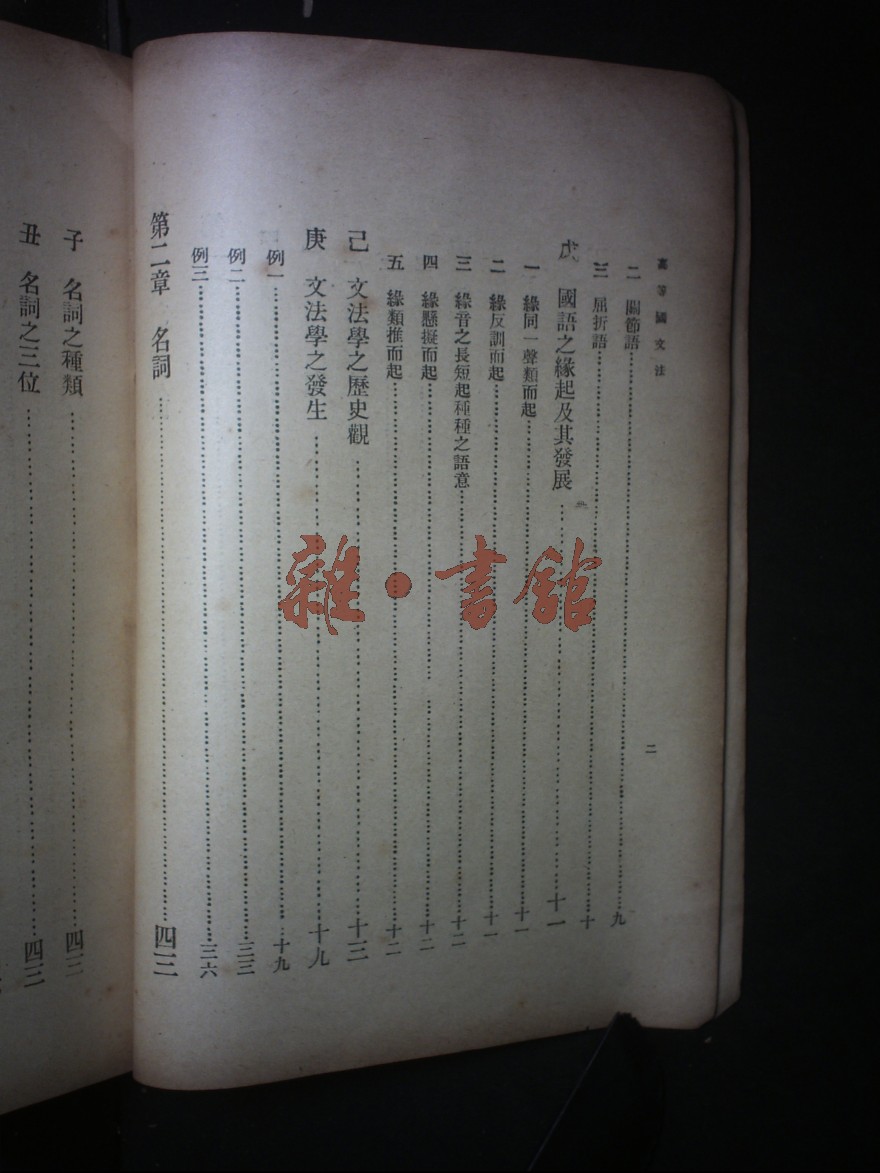 高等國文法
二
二　關節語……九
三　屈折語……十
戊　國語之緣起及其發展……十一
一　緣同一聲類而起……十一
二　緣反訓而起……十一
三　緣音之長短起種種之語意……十二
四　緣懸擬而起……十二
五　緣類推而起……十二
己　文法學之歷史觀……十三
庚　文法學之發生……十九
例一……十九
例二……三三
例三……三六
第二章　名詞……四三
子　名詞之種類……四三
丑　名詞之三位……四三
雜·書館